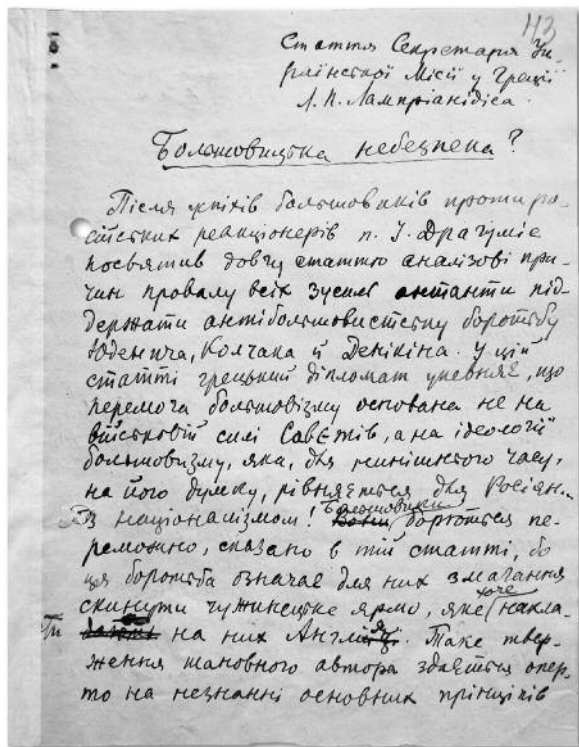 43
Стаття Секретаря Ук-
раїнської Місії у Греції
Л. П. Лампріанідіса.
Большовицька небезпека?
Після успіхів большовиків проти ро-
сійських реакціонерів п. І. Драгуміс
посвятив довгу статтю аналізові при-
чин провалу всіх зусиль антанти під-
держати антібольшовистську боротьбу
Юденича, Колчака й Денікіна. У цій
статті грецький діпломат упевняє, що
перемога большовізму основана не на
військовій силі Совєтів, а на ідеології
большовизму, яка, для нинішнього часу,
на його думку, рівняється для Росіян
з націоналізмом! Большовики борються пе-
реможно, сказано в тій статті, бо
ця боротьба означає для них змагання
скинути чужинецьке ярмо, яке хоче накла-
ти на них Англія. Таке твер-
ження шановного автора здається опер-
то на незнанні основних прінціпів